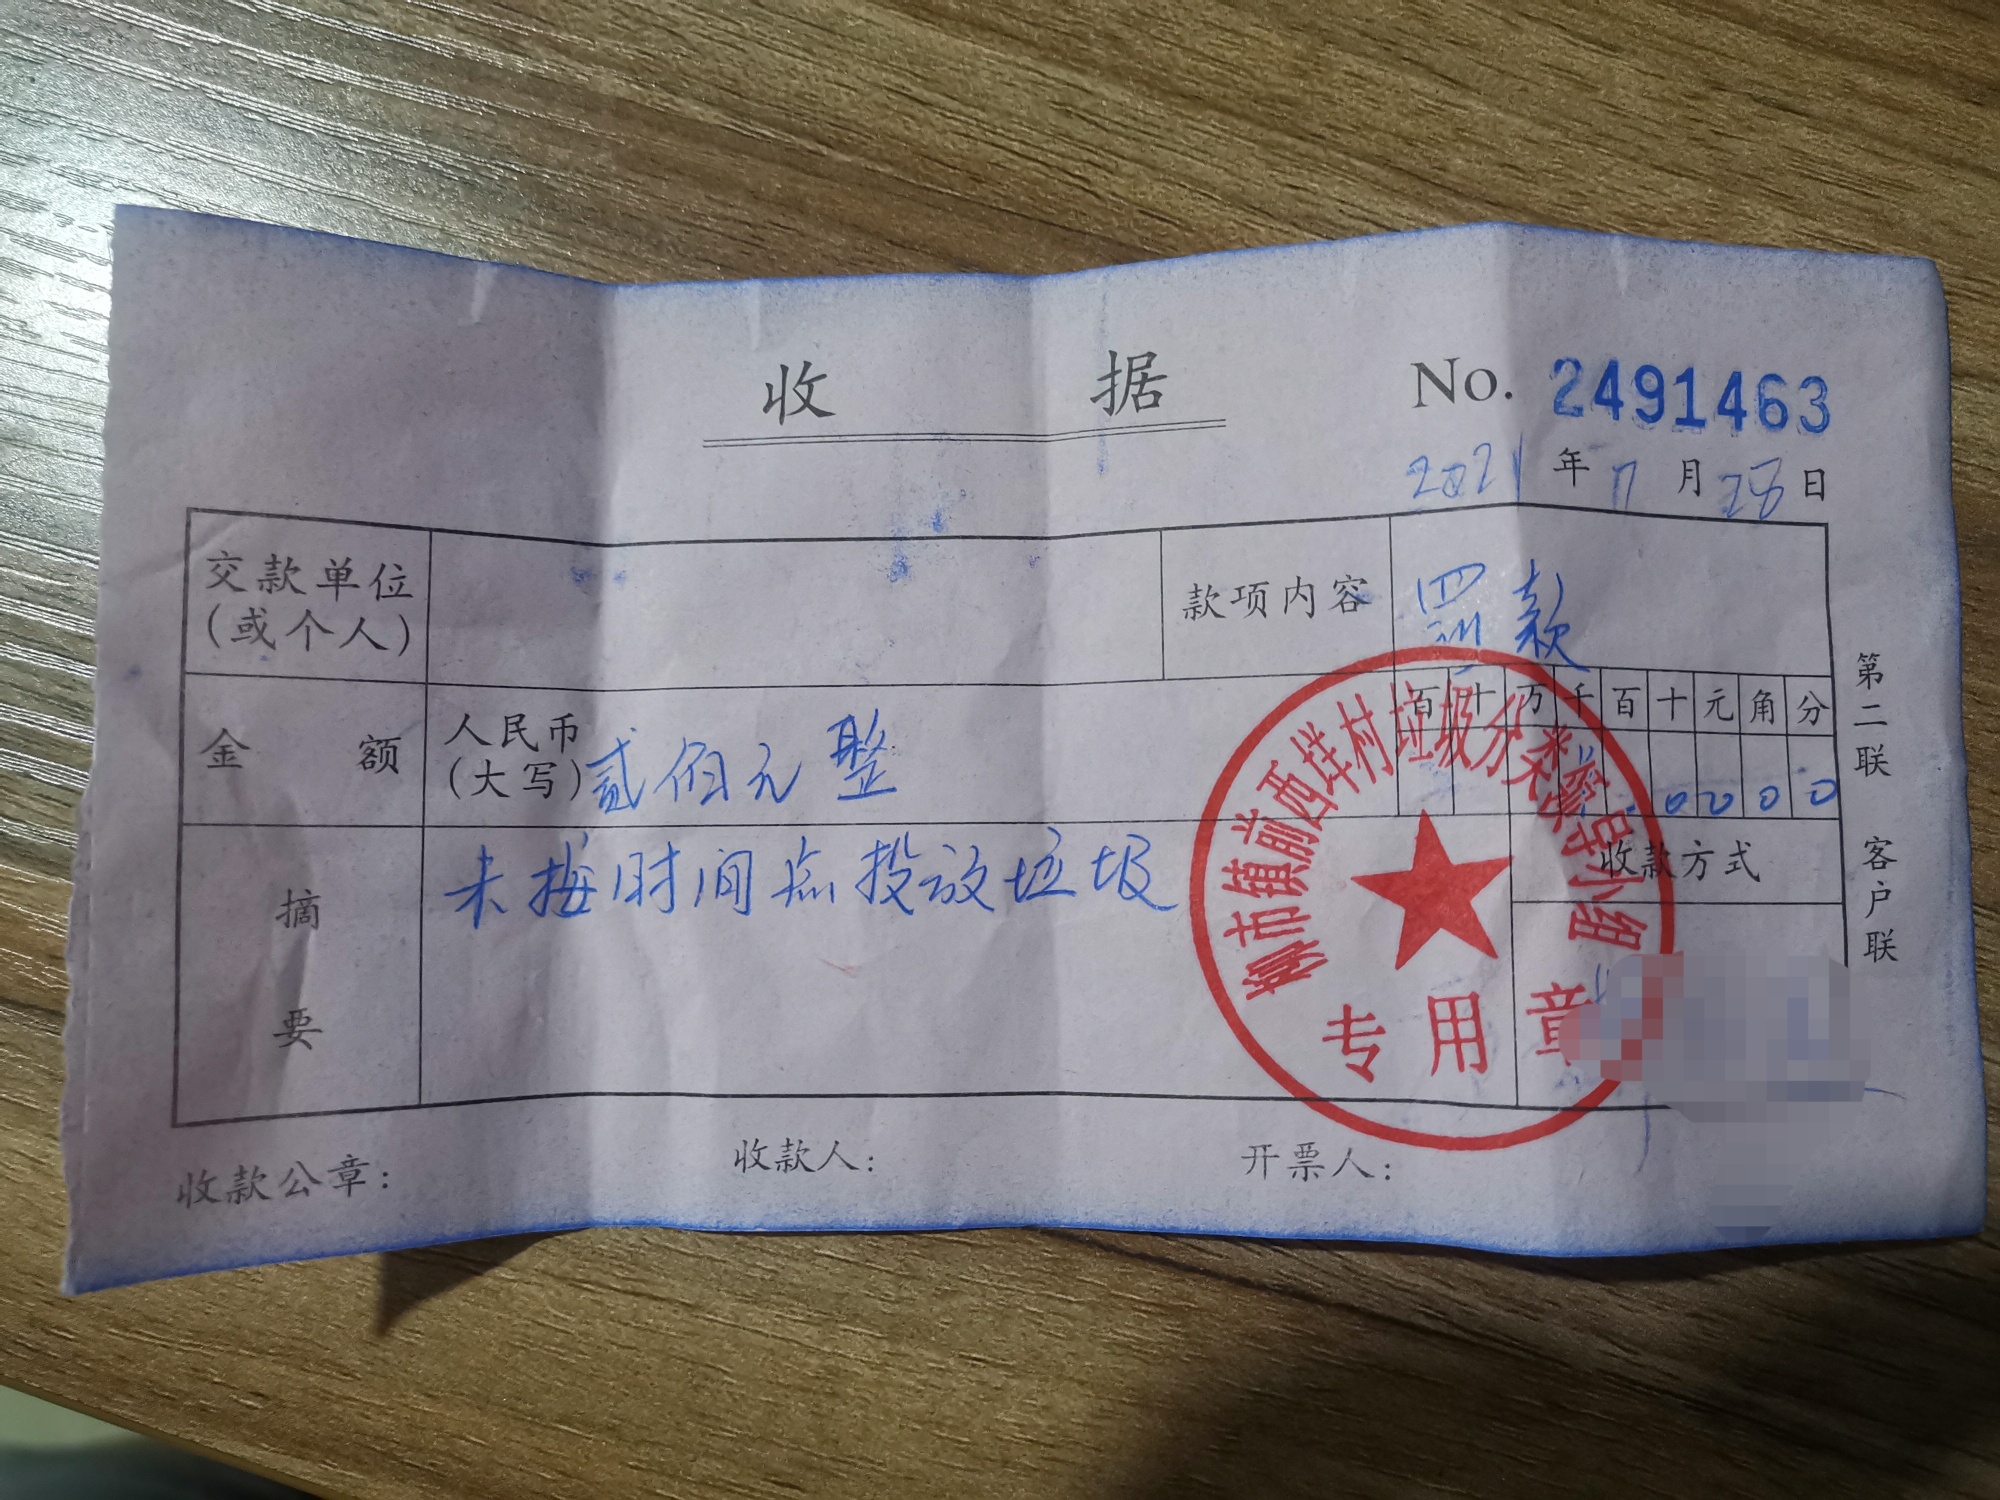 收 据
No. 2491463
2021 年 11 月 28 日
交款单位
(或个人)
款项内容
罚款
金 额
人民币
(大写)
贰佰元整
百 十 万 千 百 十 元 角 分
0 0 0 0
摘要
未按时间点投放垃圾
收款方式
柳市镇前西垟村垃圾分类领导小组
专用章
收款公章:
收款人:
开票人:
第二联 客户联